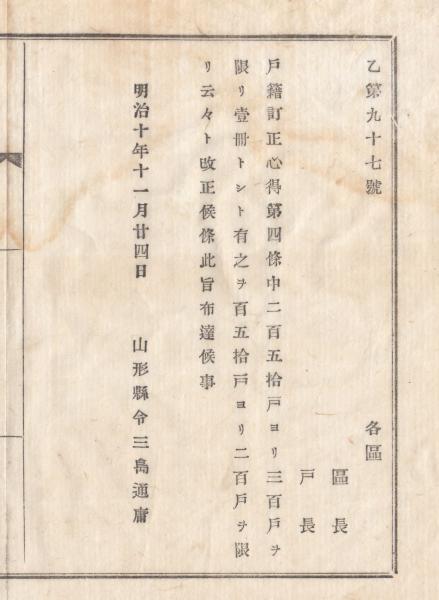 乙第九十七號
各區
區長
戸長
戸籍訂正心得第四條中二百五拾戸ヨリ三百戸ヲ
限リ壹冊トシト有之ヲ百五拾戸ヨリ二百戸ヲ限
リ云々ト改正候條此旨布達候事
明治十年十一月廿四日 山形縣令三島通庸